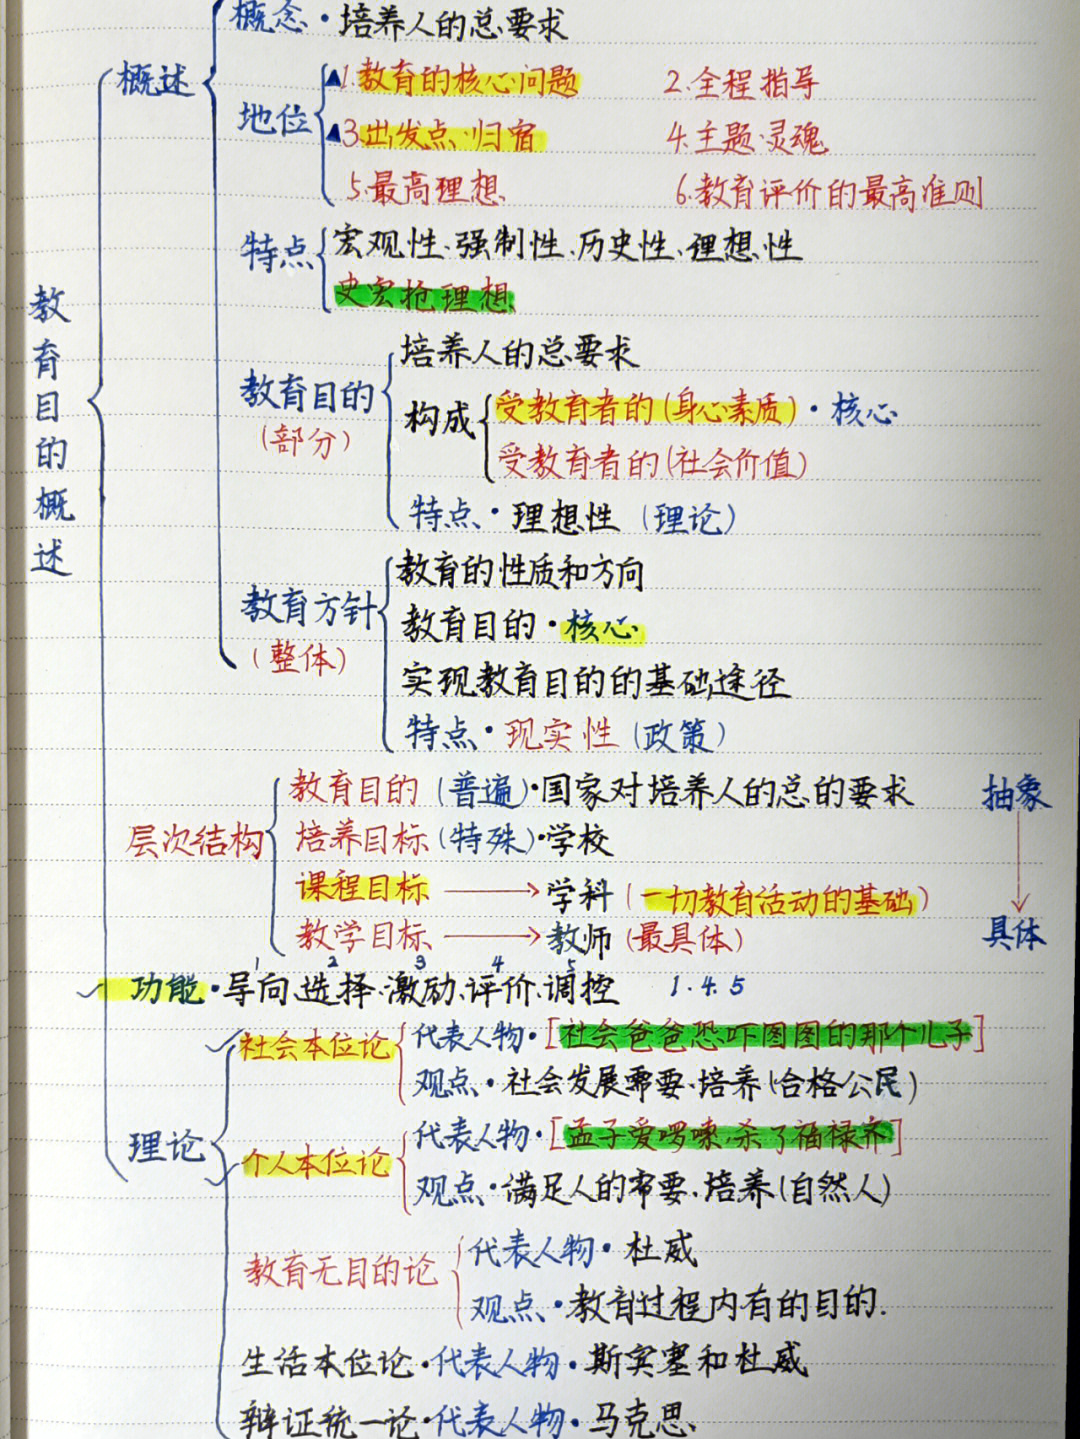 概念·培养人的总要求
概述
地位
▲1.教育的核心问题 2.全程指导
▲3.出发点·归宿 4.主题·灵魂
5.最高理想 6.教育评价的最高准则
特点
宏观性、强制性、历史性、理想性
史宏抢理想
教育目的概述
教育目的
(部分)
培养人的总要求
构成
受教育者的(身心素质)·核心
受教育者的(社会价值)
特点·理想性(理论)
教育方针
(整体)
教育的性质和方向
教育目的·核心
实现教育目的的基础途径
特点·现实性(政策)
层次结构
教育目的(普遍)·国家对培养人的总的要求
培养目标(特殊)·学校
课程目标→学科(一切教育活动的基础)
教学目标→教师(最具体)
抽象
↓
具体
1 2 3 4 5
✓功能·导向、选择、激励、评价、调控 1.4.5
理论
✓社会本位论
代表人物·[社会爸爸恐吓图图的那个儿子]
观点·社会发展需要·培养(合格公民)
✓个人本位论
代表人物·[孟子爱啰嗦·杀了福禄齐]
观点·满足人的需要·培养(自然人)
教育无目的论
代表人物·杜威
观点·教育过程内有的目的.
生活本位论·代表人物·斯宾塞和杜威
辩证统一论·代表人物·马克思